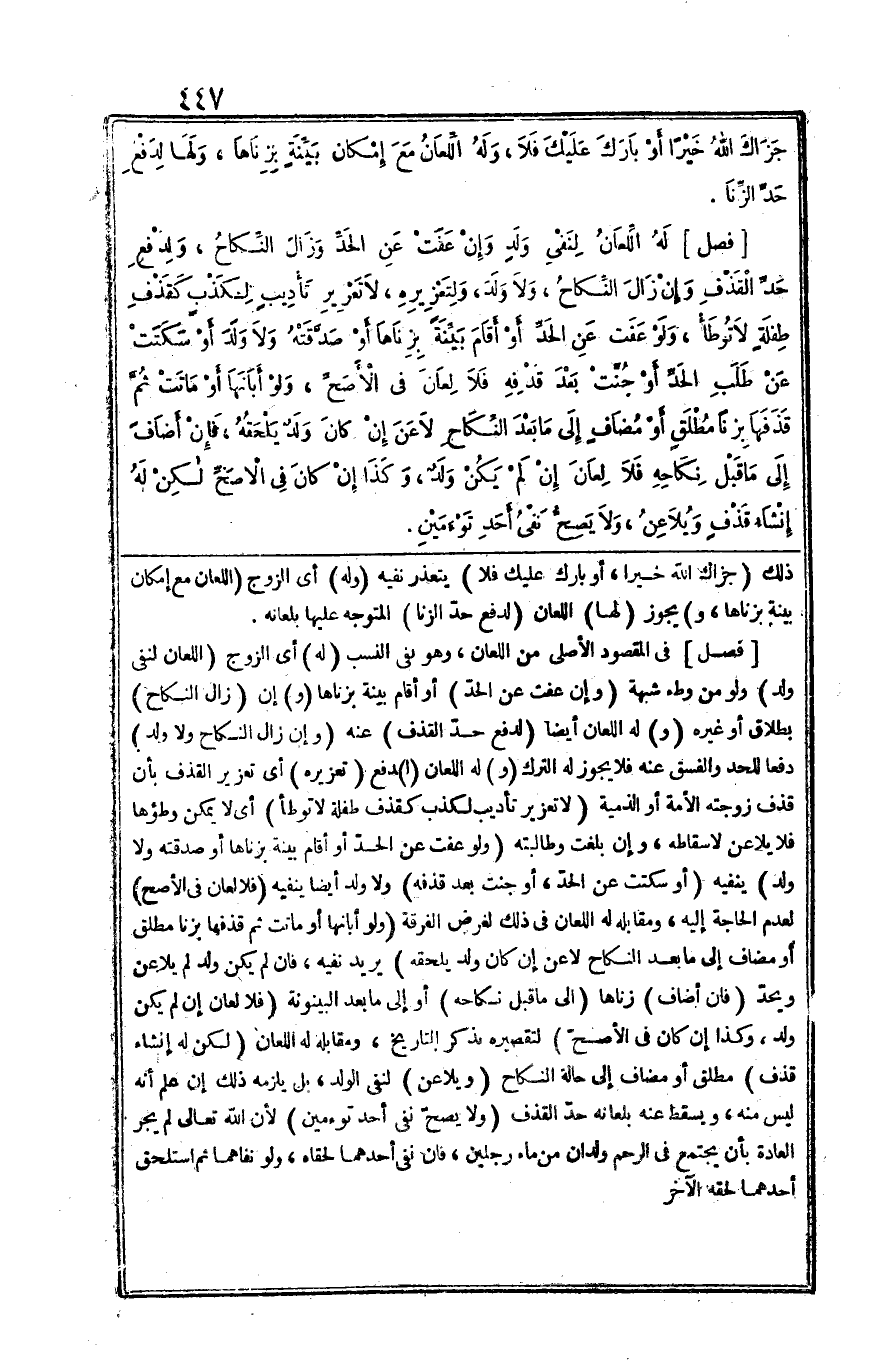 ٤٤٧
جَزَاكَ اللهُ خَيْرًا أَوْ بَارَكَ عَلَيْكَ فَلَا ، وَلَهُ اللِّعَانُ مَعَ إِمْكَانِ بَيِّنَةٍ بِزِنَاهَا ، وَلَهَا لِدَفْعِ
حَدِّ الزِّنَا .
[ فصل ] لَهُ اللِّعَانُ لِنَفْىِ وَلَدٍ وَإِنْ عَفَتْ عَنِ الحَدِّ وَزَالَ النِّكَاحُ ، وَلِدَفْعِ
حَدِّ الْقَذْفِ وَإِنْ زَالَ النِّكَاحُ ، وَلَا وَلَدَ ، وَلِتَعْزِيرِهِ ، لَا تَعْزِيرِ تَأْدِيبٍ لِكَذْبٍ كَقَذْفِ
طِفْلَةٍ لَا تُوطَأُ ، وَلَوْ عَفَتْ عَنِ الحَدِّ أَوْ أَقَامَ بَيِّنَةً بِزِنَاهَا أَوْ صَدَّقَتْهُ وَلَا وَلَدَ أَوْ سَكَتَتْ
عَنْ طَلَبِ الحَدِّ أَوْ جُنَّتْ بَعْدَ قَذْفِهِ فَلَا لِعَانَ فى الْأَصَحِّ ، وَلَوْ أَبَانَهَا أَوْ مَاتَتْ ثُمَّ
قَذَفَهَا بِزِنًا مُطْلَقٍ أَوْ مُضَافٍ إِلَى مَا بَعْدَ النِّكَاحِ لَاعَنَ إِنْ كَانَ وَلَدٌ يَلْحَقُهُ ، فَإِنْ أَضَافَ
إِلَى مَاقَبْلَ نِكَاحِهِ فَلَا لِعَانَ إِنْ لَمْ يَكُنْ وَلَدٌ ، وَكَذَا إِنْ كَانَ فِى الْاصَحِّ لٰكِنْ لَهُ
إِنْشَاءُ قَذْفٍ وَيُلَاعِنُ ، وَلَا يَصِحُّ نَفْىُ أَحَدِ تَوْءَمَيْنِ .
ذلك ( جزاك الله خيرا ، أو بارك عليك فلا ) يتعذر نفيه ( وله ) أى الزوج ( اللعان مع إمكان
بينة بزناها ، و ) يجوز ( لها ) اللعان ( لدفع حدّ الزنا ) المتوجه عليها بلعانه .
[ فصل ] فى المقصود الأصلى من اللعان ، وهو نفى النسب ( له ) أى الزوج ( اللعان لنفى
ولد ) ولو من وطء شبهة ( وإن عفت عن الحدّ ) أو أقام بينة بزناها ( و ) إن ( زال النكاح )
بطلاق أو غيره ( و ) له اللعان أيضا ( لدفع حدّ القذف ) عنه ( وإن زال النكاح ولا ولد )
دفعا للحد والفسق عنه فلا يجوز له الترك ( و ) له اللعان ( ا ) دفع ( تعزيره ) أى تعزير القذف بأن
قذف زوجته الأمة أو الذمية ( لا تعزير تأديب لكذب كقذف طفلة لا توطأ ) أى لا يمكن وطؤها
فلا يلاعن لاسقاطه ، وإن بلغت وطالبته ( ولو عفت عن الحدّ أو أقام بينة بزناها أو صدقته ولا
ولد ) ينفيه ( أو سكتت عن الحدّ ، أو جنت بعد قذفه ) ولا ولد أيضا ينفيه ( فلا لعان فى الأصح )
لعدم الحاجة إليه ، ومقابله له اللعان فى ذلك لغرض الفرقة ( ولو أبانها أو ماتت ثم قذفها بزنا مطلق
أو مضاف إلى مابعد النكاح لاعن إن كان ولد يلحقه ) يريد نفيه ، فان لم يكن ولد لم يلاعن
ويحدّ ( فان أضاف ) زناها ( الى ماقبل نكاحه ) أو إلى مابعد البينونة ( فلا لعان إن لم يكن
ولد ، وكذا إن كان فى الأصحّ ) لتقصيره بذكر التاريخ ، ومقابله له اللعان ( لكن له إنشاء
قذف ) مطلق أو مضاف إلى حالة النكاح ( ويلاعن ) لنفى الولد ، بل يلزمه ذلك إن علم أنه
ليس منه ، ويسقط عنه بلعانه حدّ القذف ( ولا يصحّ نفى أحد توءمين ) لأن الله تعالى لم يجر
العادة بأن يجتمع فى الرحم ولدان من ماء رجلين ، فان نفى أحدهما لحقاه ، ولو نفاهما ثم استلحق
أحدهما لحقه الآخر